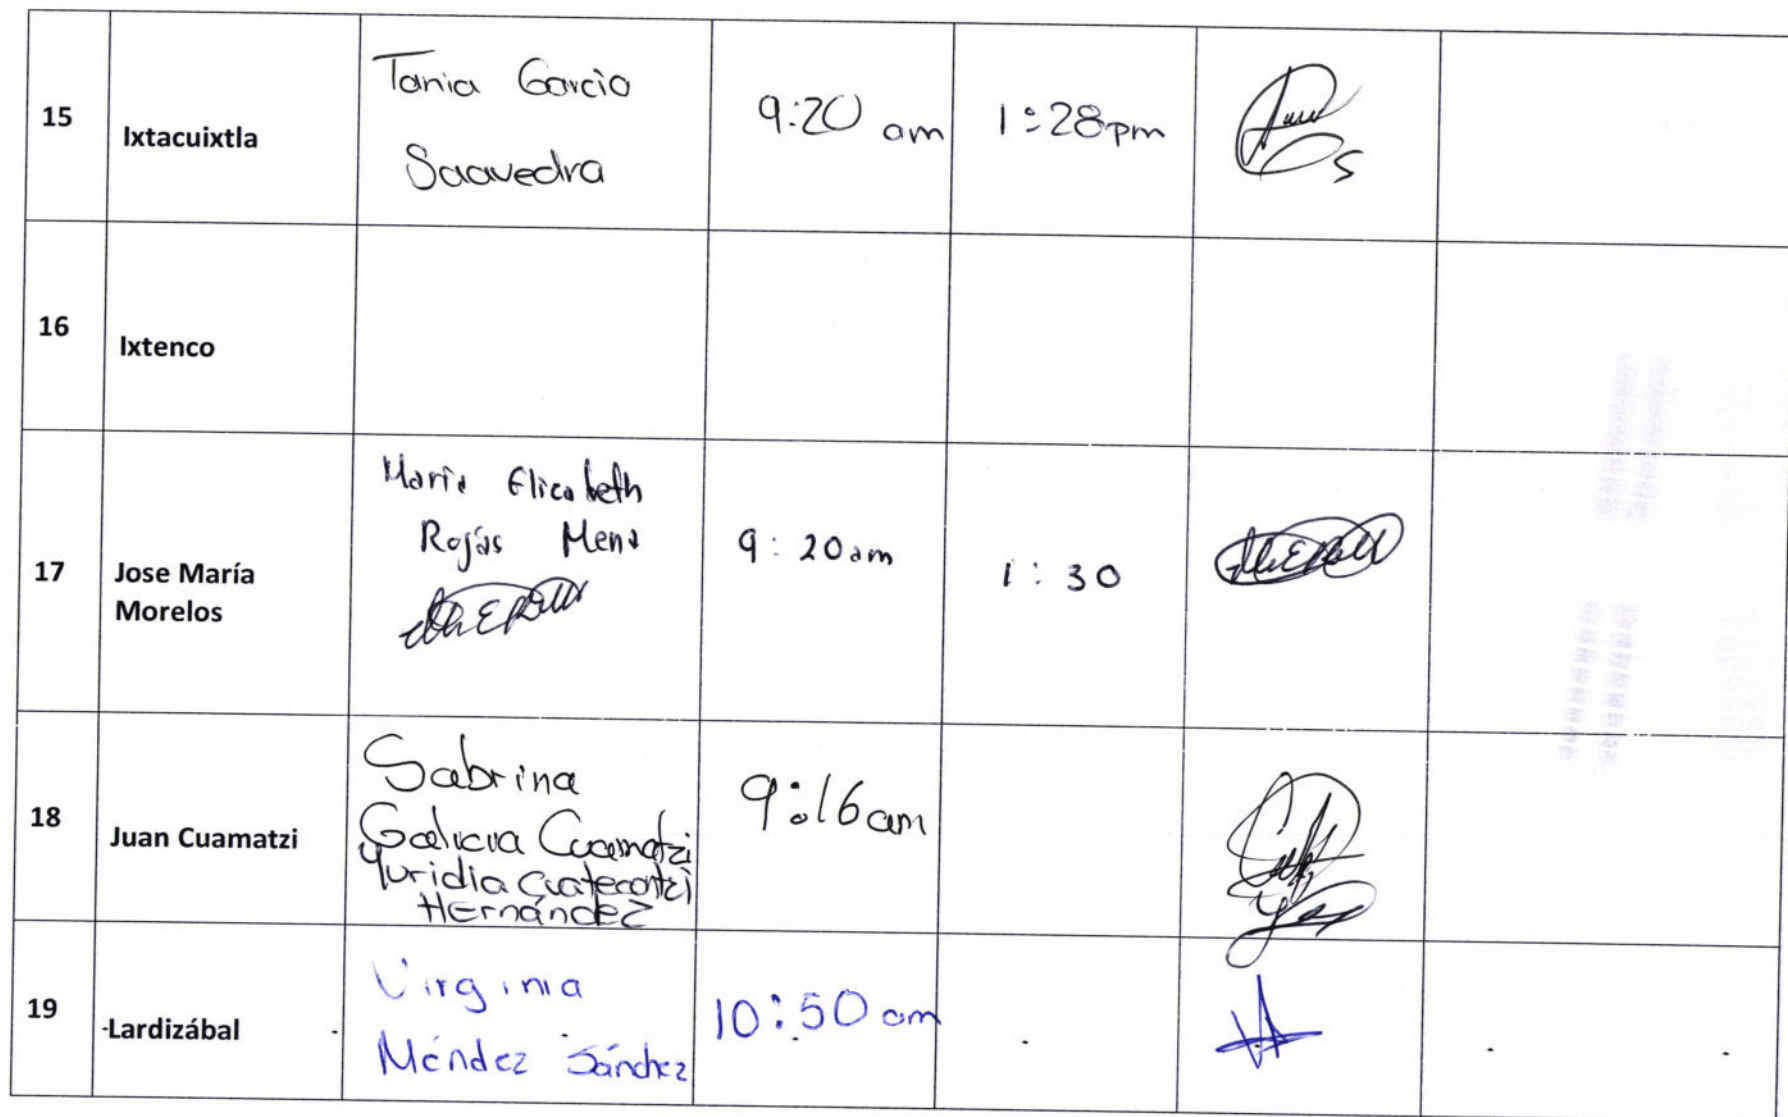 15
Ixtacuixtla
Tania Garcia
Saavedra
9:20 am
1:28pm
16
Ixtenco
17
Jose María
Morelos
Maria Elizabeth
Rojas Mena
9:20am
1:30
18
Juan Cuamatzi
Sabrina
Galicia Cuamatzi
Yuridia Cuatecontzi
Hernández
9:16am
19
Lardizábal
Virginia
Méndez Sánchez
10:50 am